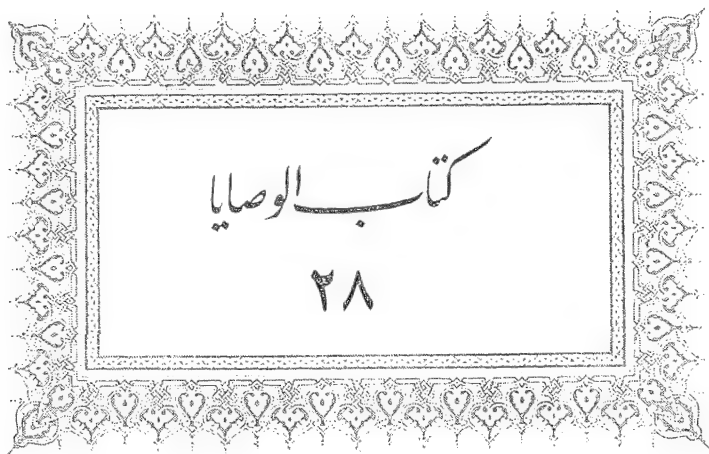 كتاب الوصايا
٢٨